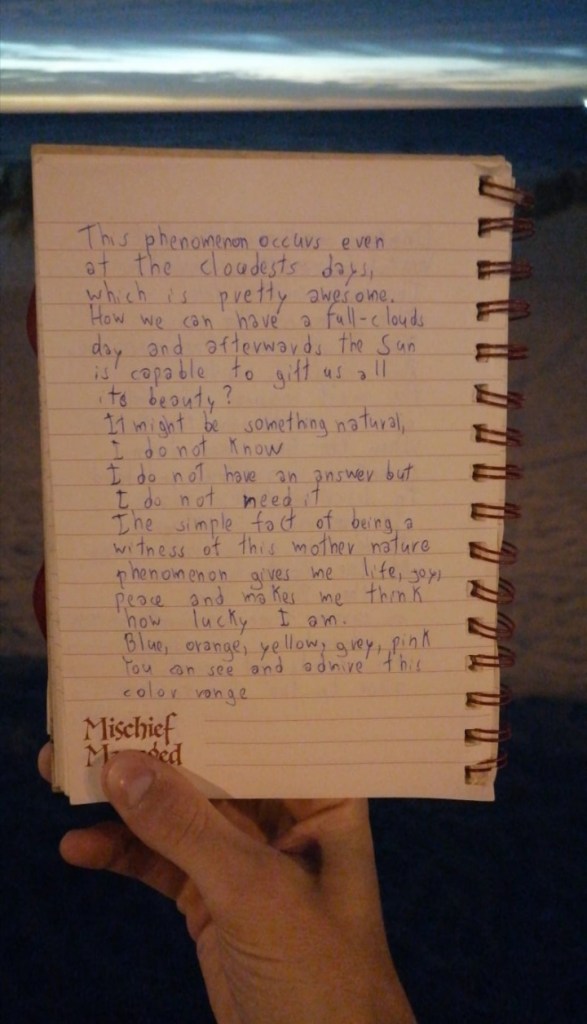 This phenomenon occurs even
at the cloudests days,
which is pretty awesome.
How we can have a full-clouds
day and afterwards the Sun
is capable to gift us all
its beauty?
It might be something natural,
I do not know
I do not have an answer but
I do not need it
The simple fact of being a
witness of this mother nature
phenomenon gives me life, joy,
peace and makes me think
how lucky I am.
Blue, orange, yellow, grey, pink
You can see and admire this
color range
Mischief
Managed